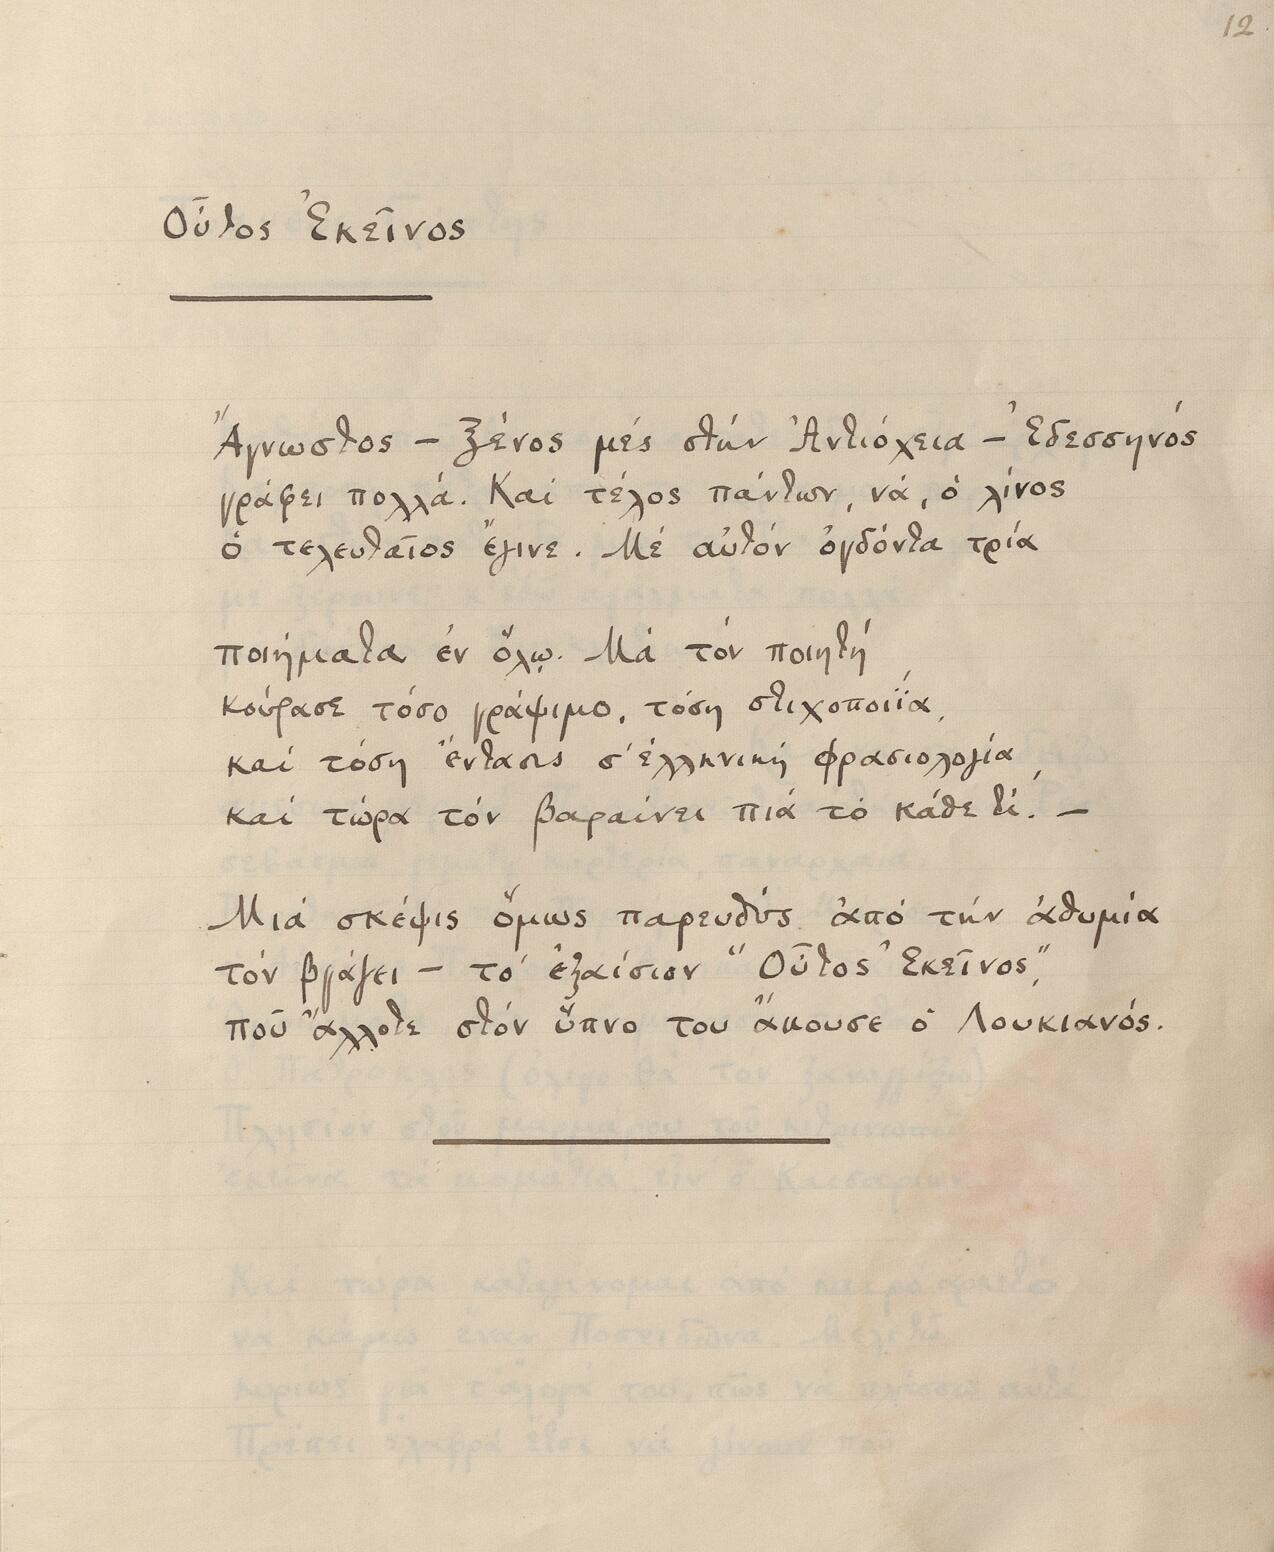 12
Οὗτος Ἐκεῖνος
Ἄγνωστος — ξένος μές στήν Ἀντιόχεια — Ἐδεσσηνός
γράφει πολλά. Καί τέλος πάντων, νά, ὁ λίνος
ὁ τελευταῖος ἔγινε. Μέ αὐτόν ὀγδόντα τρία
ποιήματα ἐν ὅλῳ. Μά τόν ποιητή
κούρασε τόσο γράψιμο, τόση στιχοποιΐα,
καί τόση ἔντασις σ' ἑλληνική φρασιολογία,
καί τώρα τόν βαραίνει πιά τό κάθε τί. —
Μιά σκέψις ὅμως παρευθύς ἀπό τήν ἀθυμία
τόν βγάζει — τό ἐξαίσιον "Οὗτος Ἐκεῖνος",
ποῦ ἄλλοτε στόν ὕπνο του ἄκουσε ὁ Λουκιανός.